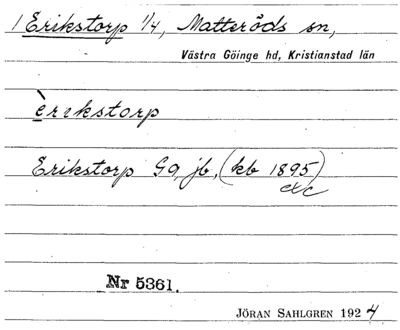 1 Erikstorp 1/4, Matteröds sn,
Västra Göinge hd, Kristianstad län
èrikstorp
Erikstorp Gg, jb, (kb 1895)
etc
Nr 5361.
JÖRAN SAHLGREN 1924